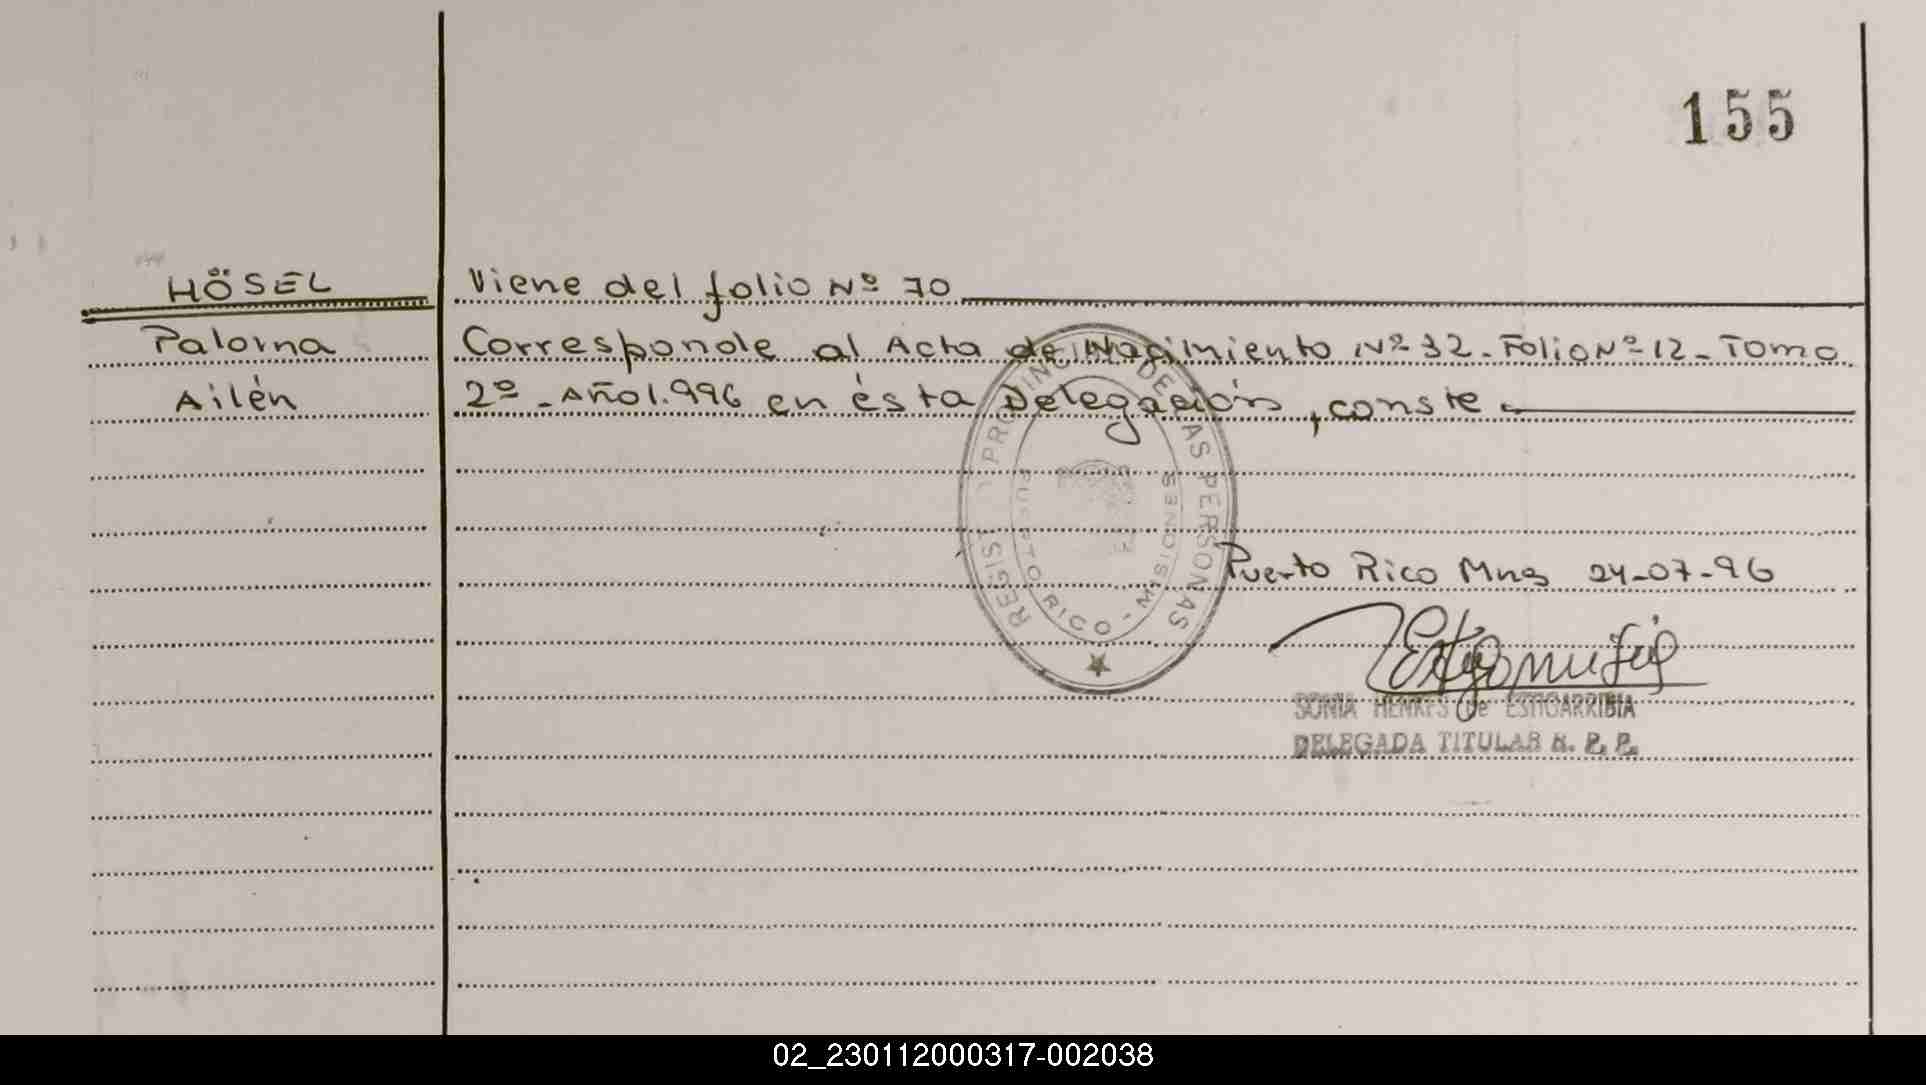 155
HÖSEL
Viene del folio Nº 70
Paloma
Corresponde al Acta de Nacimiento Nº 32 - Folio Nº 12 - Tomo
Ailén
2º - Año 1.996 en ésta Delegación, conste.
REGISTRO PROVINCIAL DE LAS PERSONAS
PUERTO RICO - MISIONES
Puerto Rico Mnes 24-07-96
SONIA HENKES de ESTIGARRIBIA
DELEGADA TITULAR R. P. P.
02_230112000317-002038